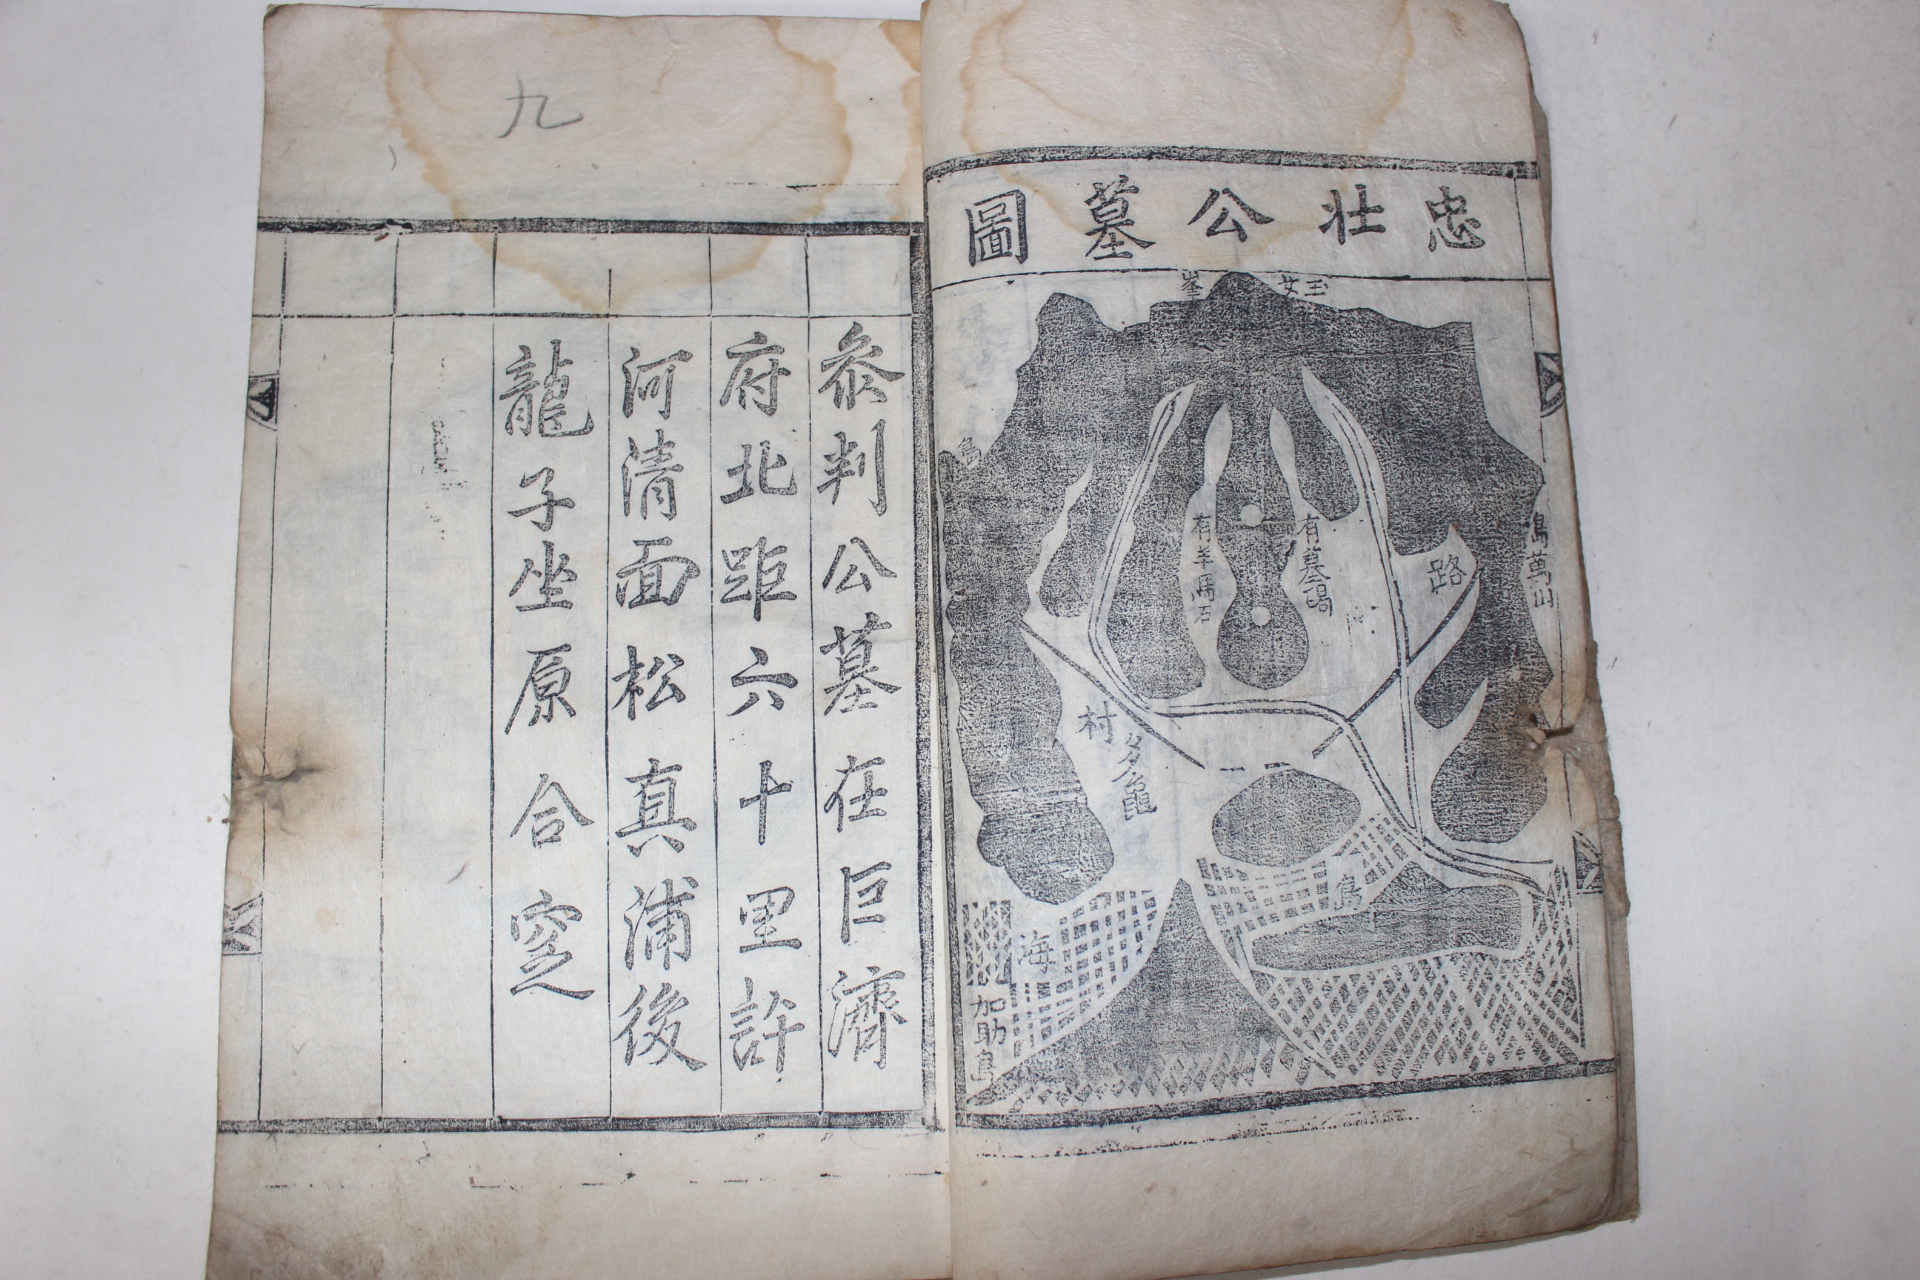 忠壯公墓圖
玉女峯
島萬山
路
有墓碣
有羊馬石
島
村
多龜
島
海
加助島
九
叅判公墓在巨濟
府北距六十里許
河清面松真浦後
龍子坐原合窆